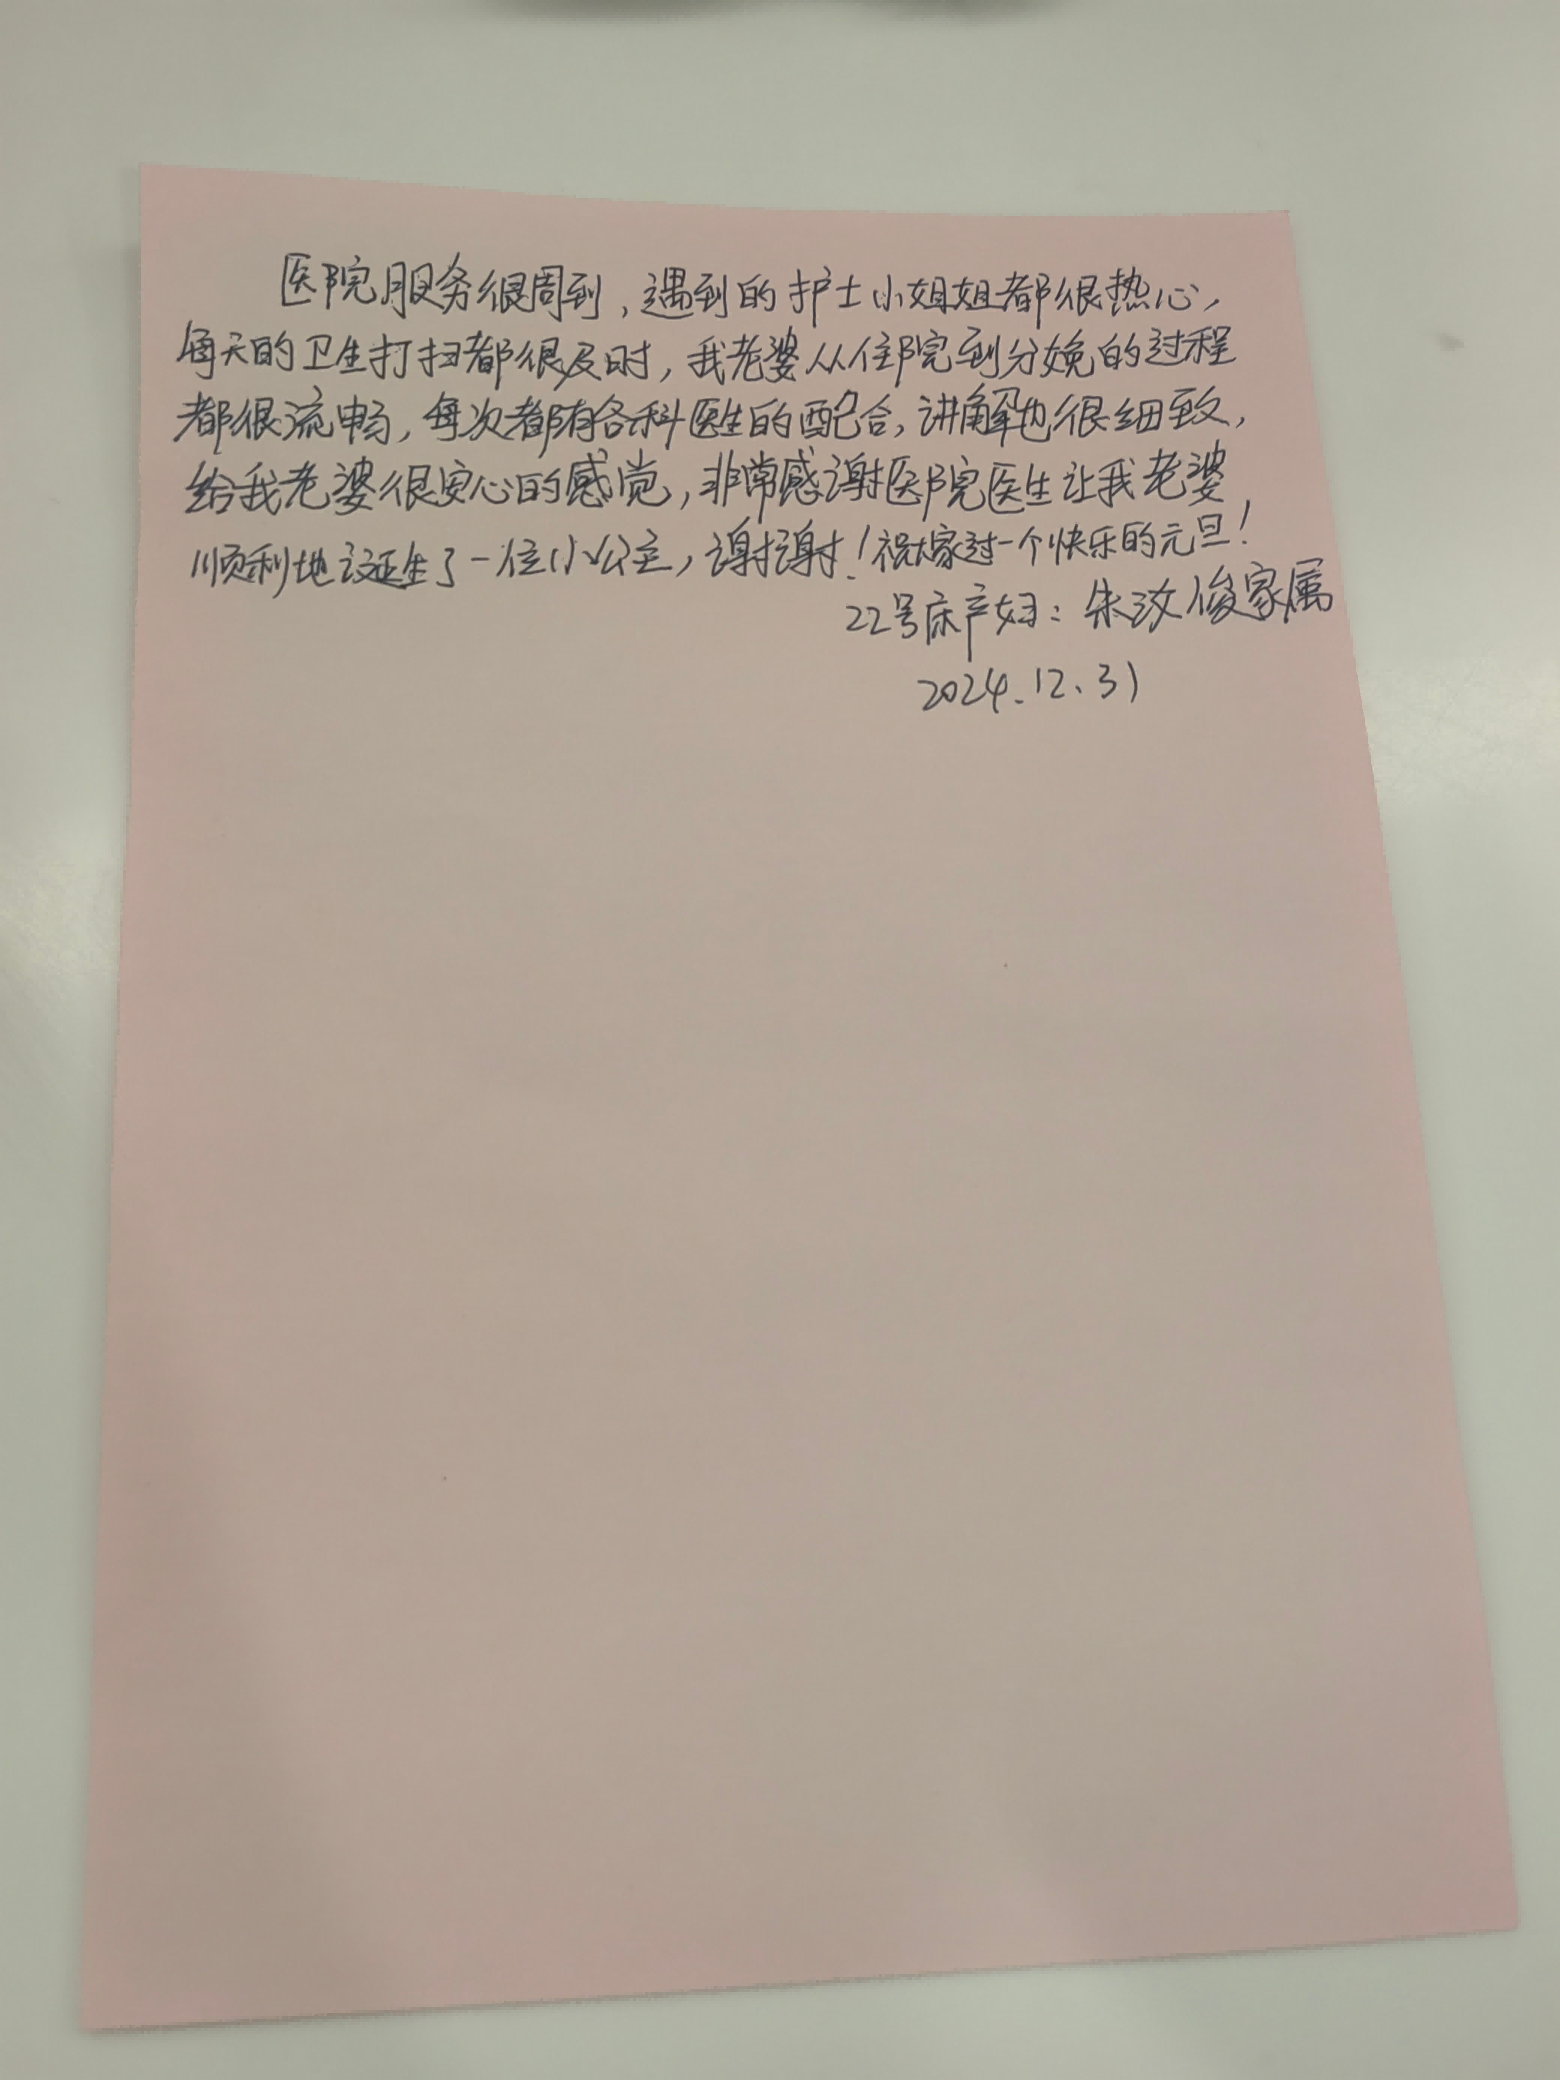 医院服务很周到，遇到的护士小姐姐都很热心，
每天的卫生打扫都很及时，我老婆从住院到分娩的过程
都很流畅，每次都有各科医生的配合，讲解也很细致，
给我老婆很安心的感觉，非常感谢医院医生让我老婆
顺利地诞生了一位小公主，谢谢！祝大家过一个快乐的元旦！
22号床产妇：朱汝俊家属
2024.12.31